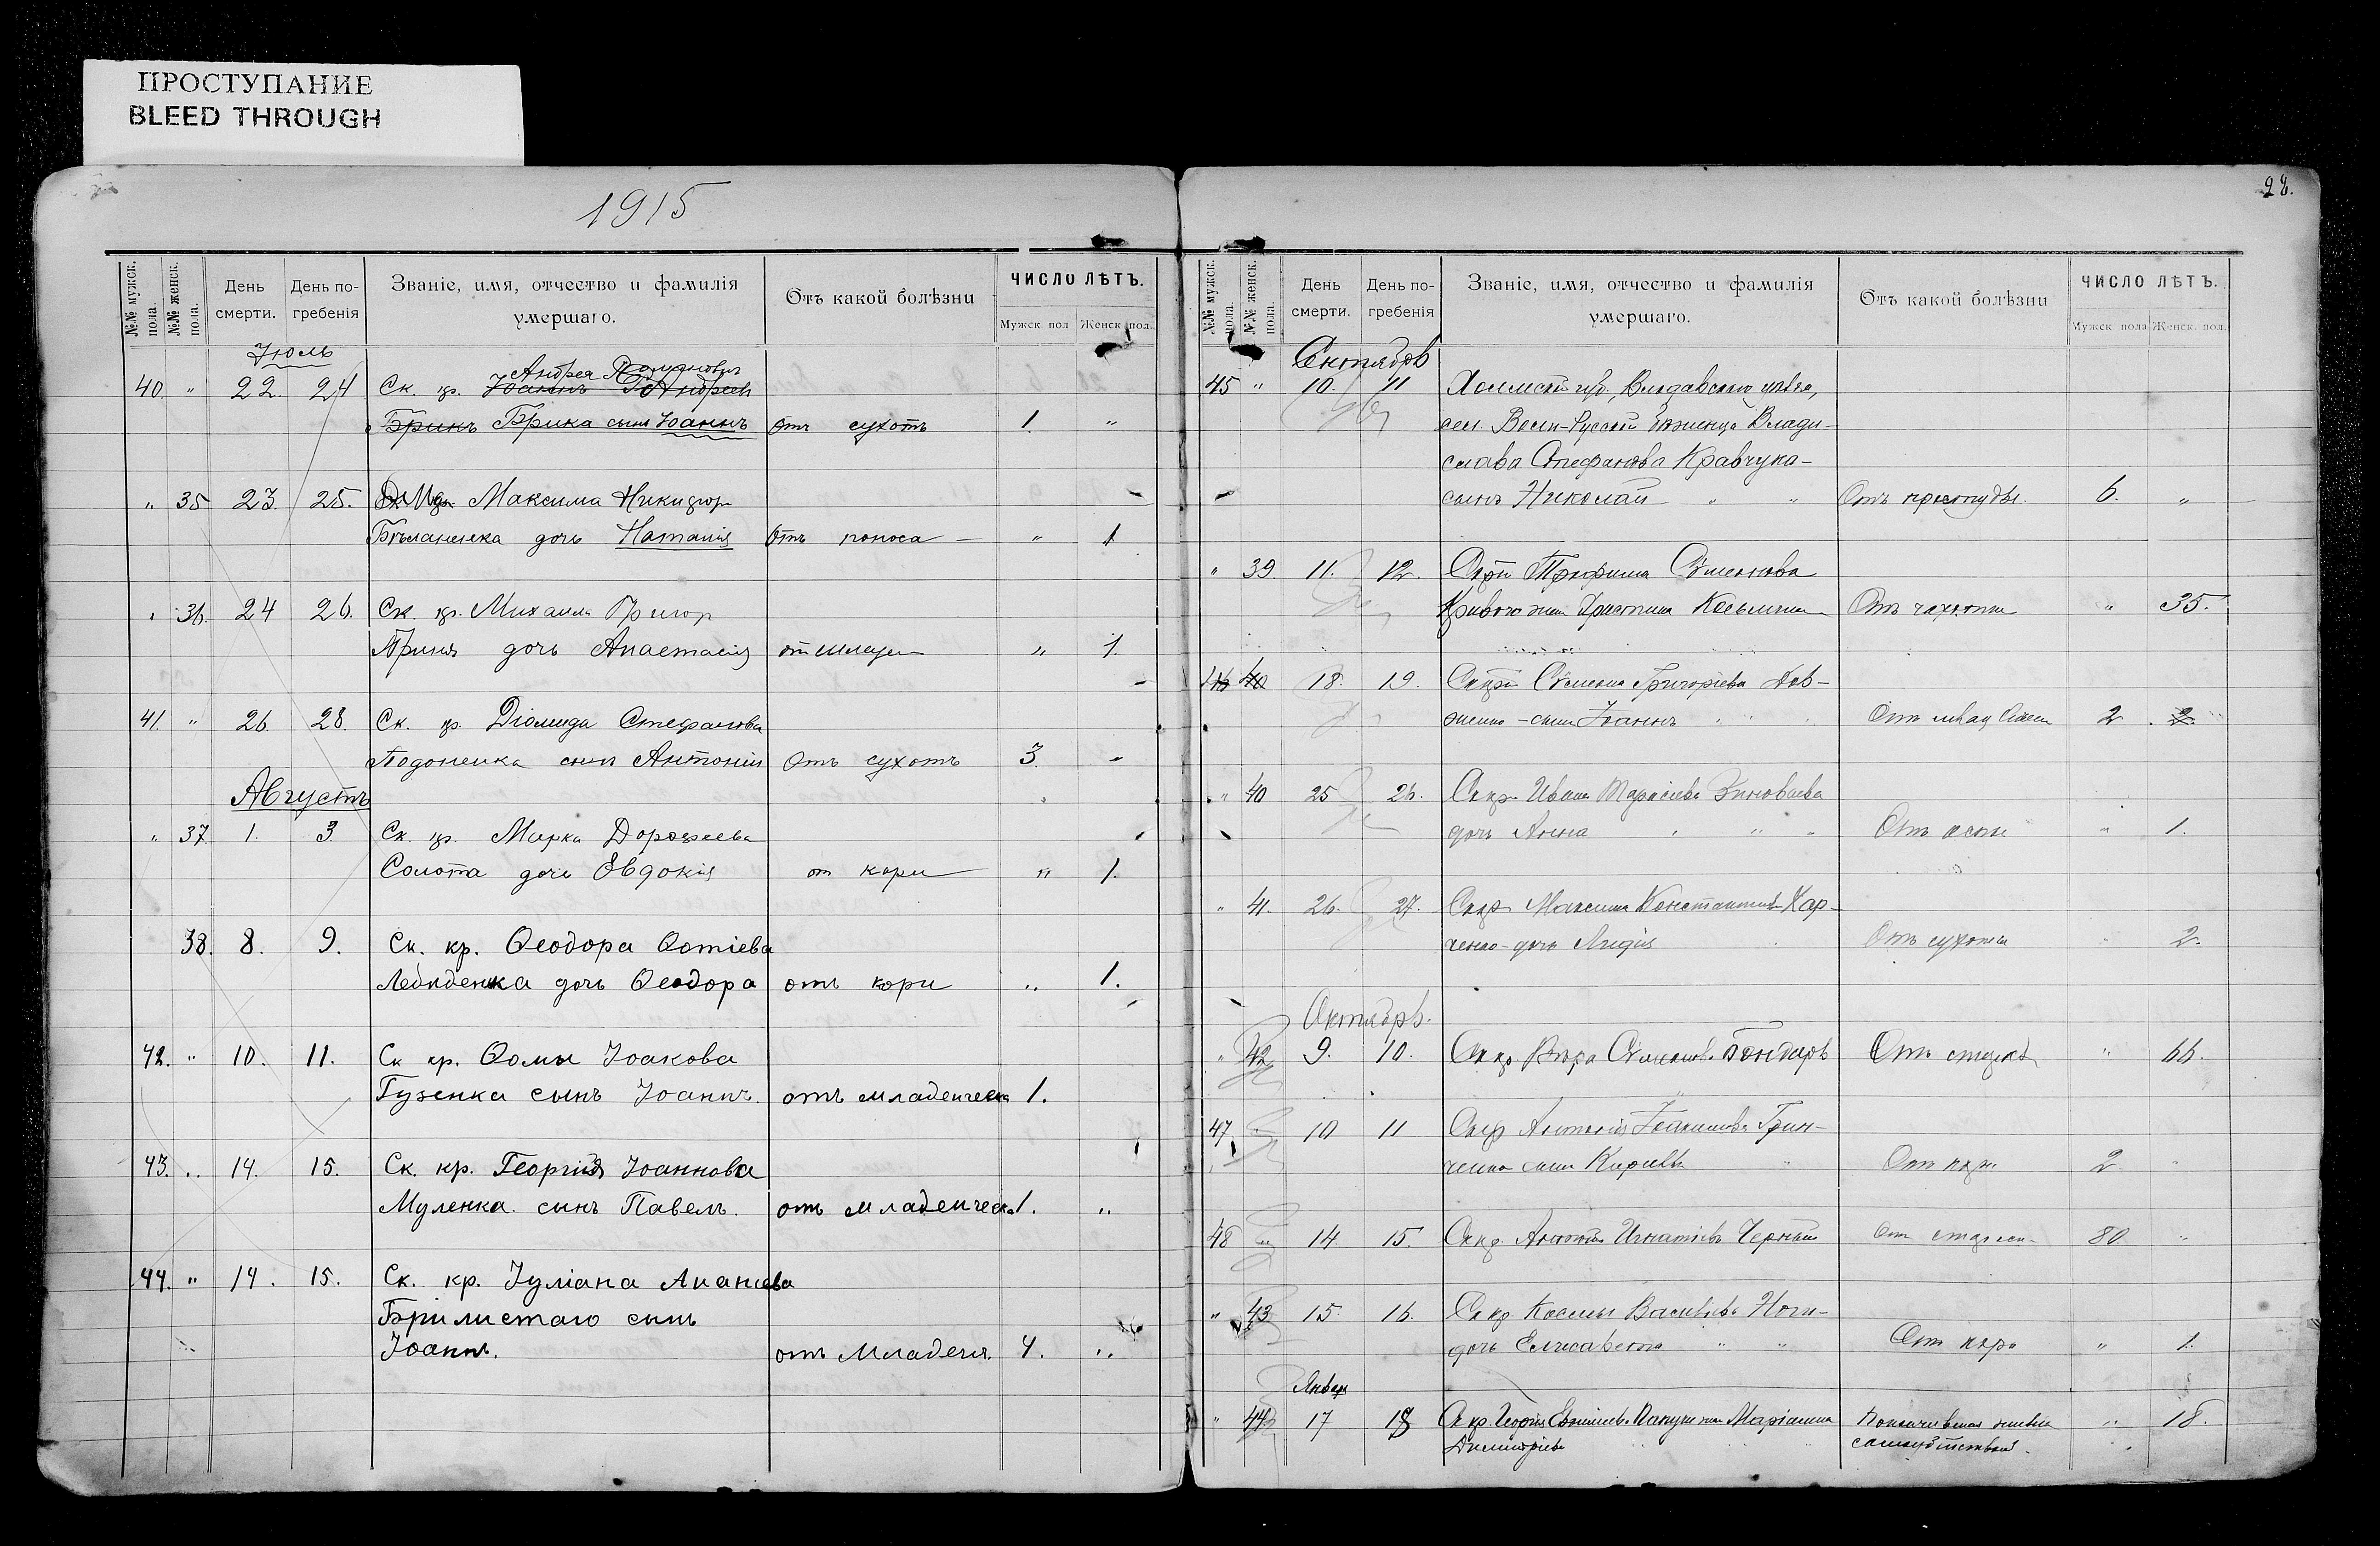 ПРОСТУПАНИЕ
BLEED THROUGH
1915
№№ мужск. пола.
№№ женск. пола.
День смерти.
День погребенія
Званіе, имя, отчество и фамилія
умершаго.
Отъ какой болѣзни
ЧИСЛО ЛѢТЪ.
Мужск пол Женск пол.
Іюль
Андрея Романович
40. " 22. 24 Ск. кр. Іоаннъ Андреев
Брикъ Брика сынъ Іоаннъ Отъ сухотъ 1. "
" 35 23. 25. Максима Никифор
дочь Наталия Отъ поноса — " 1
" 36. 24 26. Ск. кр. Михаила Григор
дочь Анастасия " 1.
41. " 26. 28. Ск. кр. Діомида Стефанова
сынъ Антоній Отъ сухотъ 3. "
Августъ
" 37. 1. 3 Ск. кр. Марка Дорофеева
Солота дочь Евдокія от кори " 1.
38. 8. 9. Ск. кр. Ѳеодора Ѳотіева
Лебиденка дочь Ѳеодора отъ кори " 1.
42. " 10. 11. Ск кр. Ѳомы Іоакова
Гузенка сынъ Іоаннъ. отъ младенческа 1.
43. " 14. 15. Ск. кр. Георгія Іоаннова
Муленка. сынъ Павелъ. отъ младенческа 1. "
44. " 14. 15. Ск. кр. Іуліана Ананіева
Брилистаго сынъ
Іоаннъ. отъ младенч. 4. "
28.
№№ мужск. пола.
№№ женск. пола.
День смерти.
День погребенія
Званіе, имя, отчество и фамилія
умершаго.
Отъ какой болѣзни
ЧИСЛО ЛѢТЪ.
Мужск пола Женск. пол.
Сентябрь
45 " 10. 11 Холмской губ., Влодавскаго уѣзда,
сел. Воли-Русской бѣженца Влади-
слава Стефанова Кравчука-
сынъ Николай " " Отъ простуды. 6. "
" 39 11. 12. Скр Трофима Сѵмеонова
Кривого жена Христина Косьмина Отъ чахотки " 35.
46 40 18. 19. Скр Сѵмеона Григоріева Дов-
женко - сынъ Іоаннъ 2 2
" 40 25 26. Скр Ивана Тарасіева
дочь Анна Отъ " 1.
" 41. 26. 27. Скр Максима Константинова Хар-
ченко - дочь Лидія Отъ сухотъ " 2.
Октябрь.
" 42 9. 10. Скр Вѣра Сѵмеонова Бондарь Отъ " 66.
47 10 11 Скр Антонія Іоакимова Грин-
ченко сынъ Кириллъ " Отъ кори 2 "
48 " 14 15. Скр. Антоній Игнатіевъ Черный Отъ старости 80 "
" 43 15 16. Скр Космы Васильева Ноги-
дочь Елисавета " " От кори " 1.
Январь
" 44 17 18 Ск кр. Георгія жена Маріанна " 18.
Димитріева самоубійствомъ.